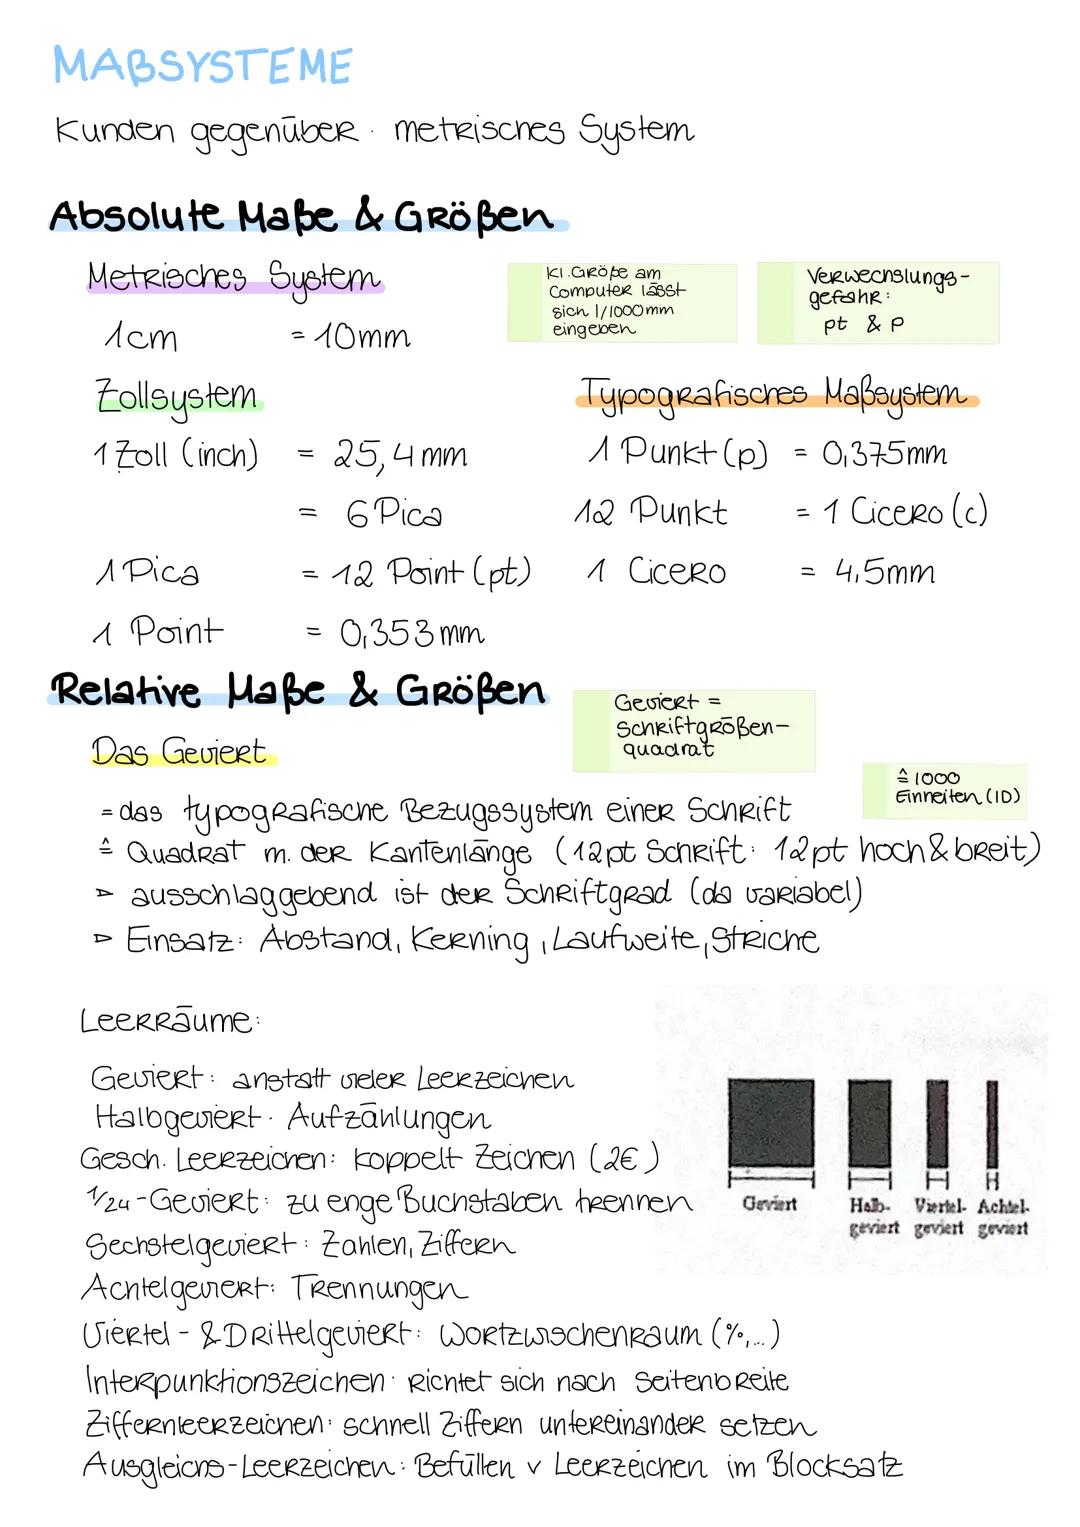 MAßSYSTEME
Kunden gegenüber: metrisches System
Absolute Maße & Größen
Metrisches System
kl. Größe am
Computer lässt
sich 1/1000mm
eingeben
Verwechslungs-
gefahr:
pt & p
1cm = 10mm
Zollsystem
1 Zoll (inch) = 25,4mm
= 6 Pica
1 Pica = 12 Point (pt)
1 Point = 0,353mm
Typografisches Maßsystem
1 Punkt (p) = 0,375mm
12 Punkt = 1 Cicero (c)
1 Cicero = 4,5mm
Relative Maße & Größen
Geviert =
Schriftgrößen-
quadrat
Das Geviert
≙ 1000
Einheiten (ID)
= das typografische Bezugssystem einer Schrift
≙ Quadrat m. der Kantenlänge (12pt Schrift: 12pt hoch & breit)
▷ ausschlaggebend ist der Schriftgrad (da variabel)
▷ Einsatz: Abstand, Kerning, Laufweite, Striche
Leerräume:
Geviert: anstatt vieler Leerzeichen
Halbgeviert: Aufzählungen
Gesch. Leerzeichen: koppelt Zeichen (2€)
1/24-Geviert: zu enge Buchstaben trennen
Sechstelgeviert: Zahlen, Ziffern
Achtelgeviert: Trennungen
Viertel- & Drittelgeviert: Wortzwischenraum (%,...)
Interpunktionszeichen: richtet sich nach Seitenbreite
Ziffernleerzeichen: schnell Ziffern untereinander setzen
Ausgleichs-Leerzeichen: Befüllen v Leerzeichen im Blocksatz
Geviert
Halb-
geviert
Viertel-
geviert
Achtel-
geviert